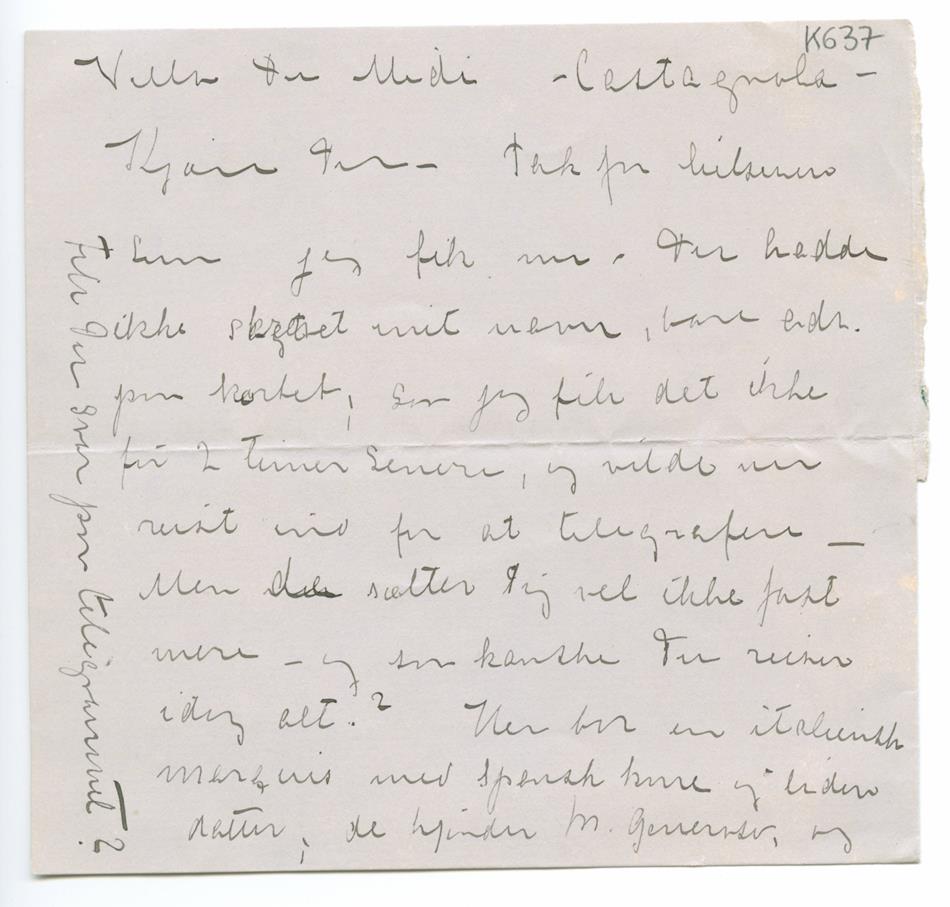 K637
Villa du Midi - Castagnola -
Kjære Du - Tak for hilsenen
som jeg fik nu - Du hadde
ikke skrevet mit navn, bare adr.
paa kortet, saa jeg fik det ikke
før 2 timer senere, og vilde nu
reist ind for at telegrafere _
Men det sætter dig vel ikke fast
mere - og saa kanske Du reiser
idag alt? Her bor en italiensk
marquis med spansk kone og liden
datter, de kjender M. Generoso, og
fik Du svar paa telegrammet?